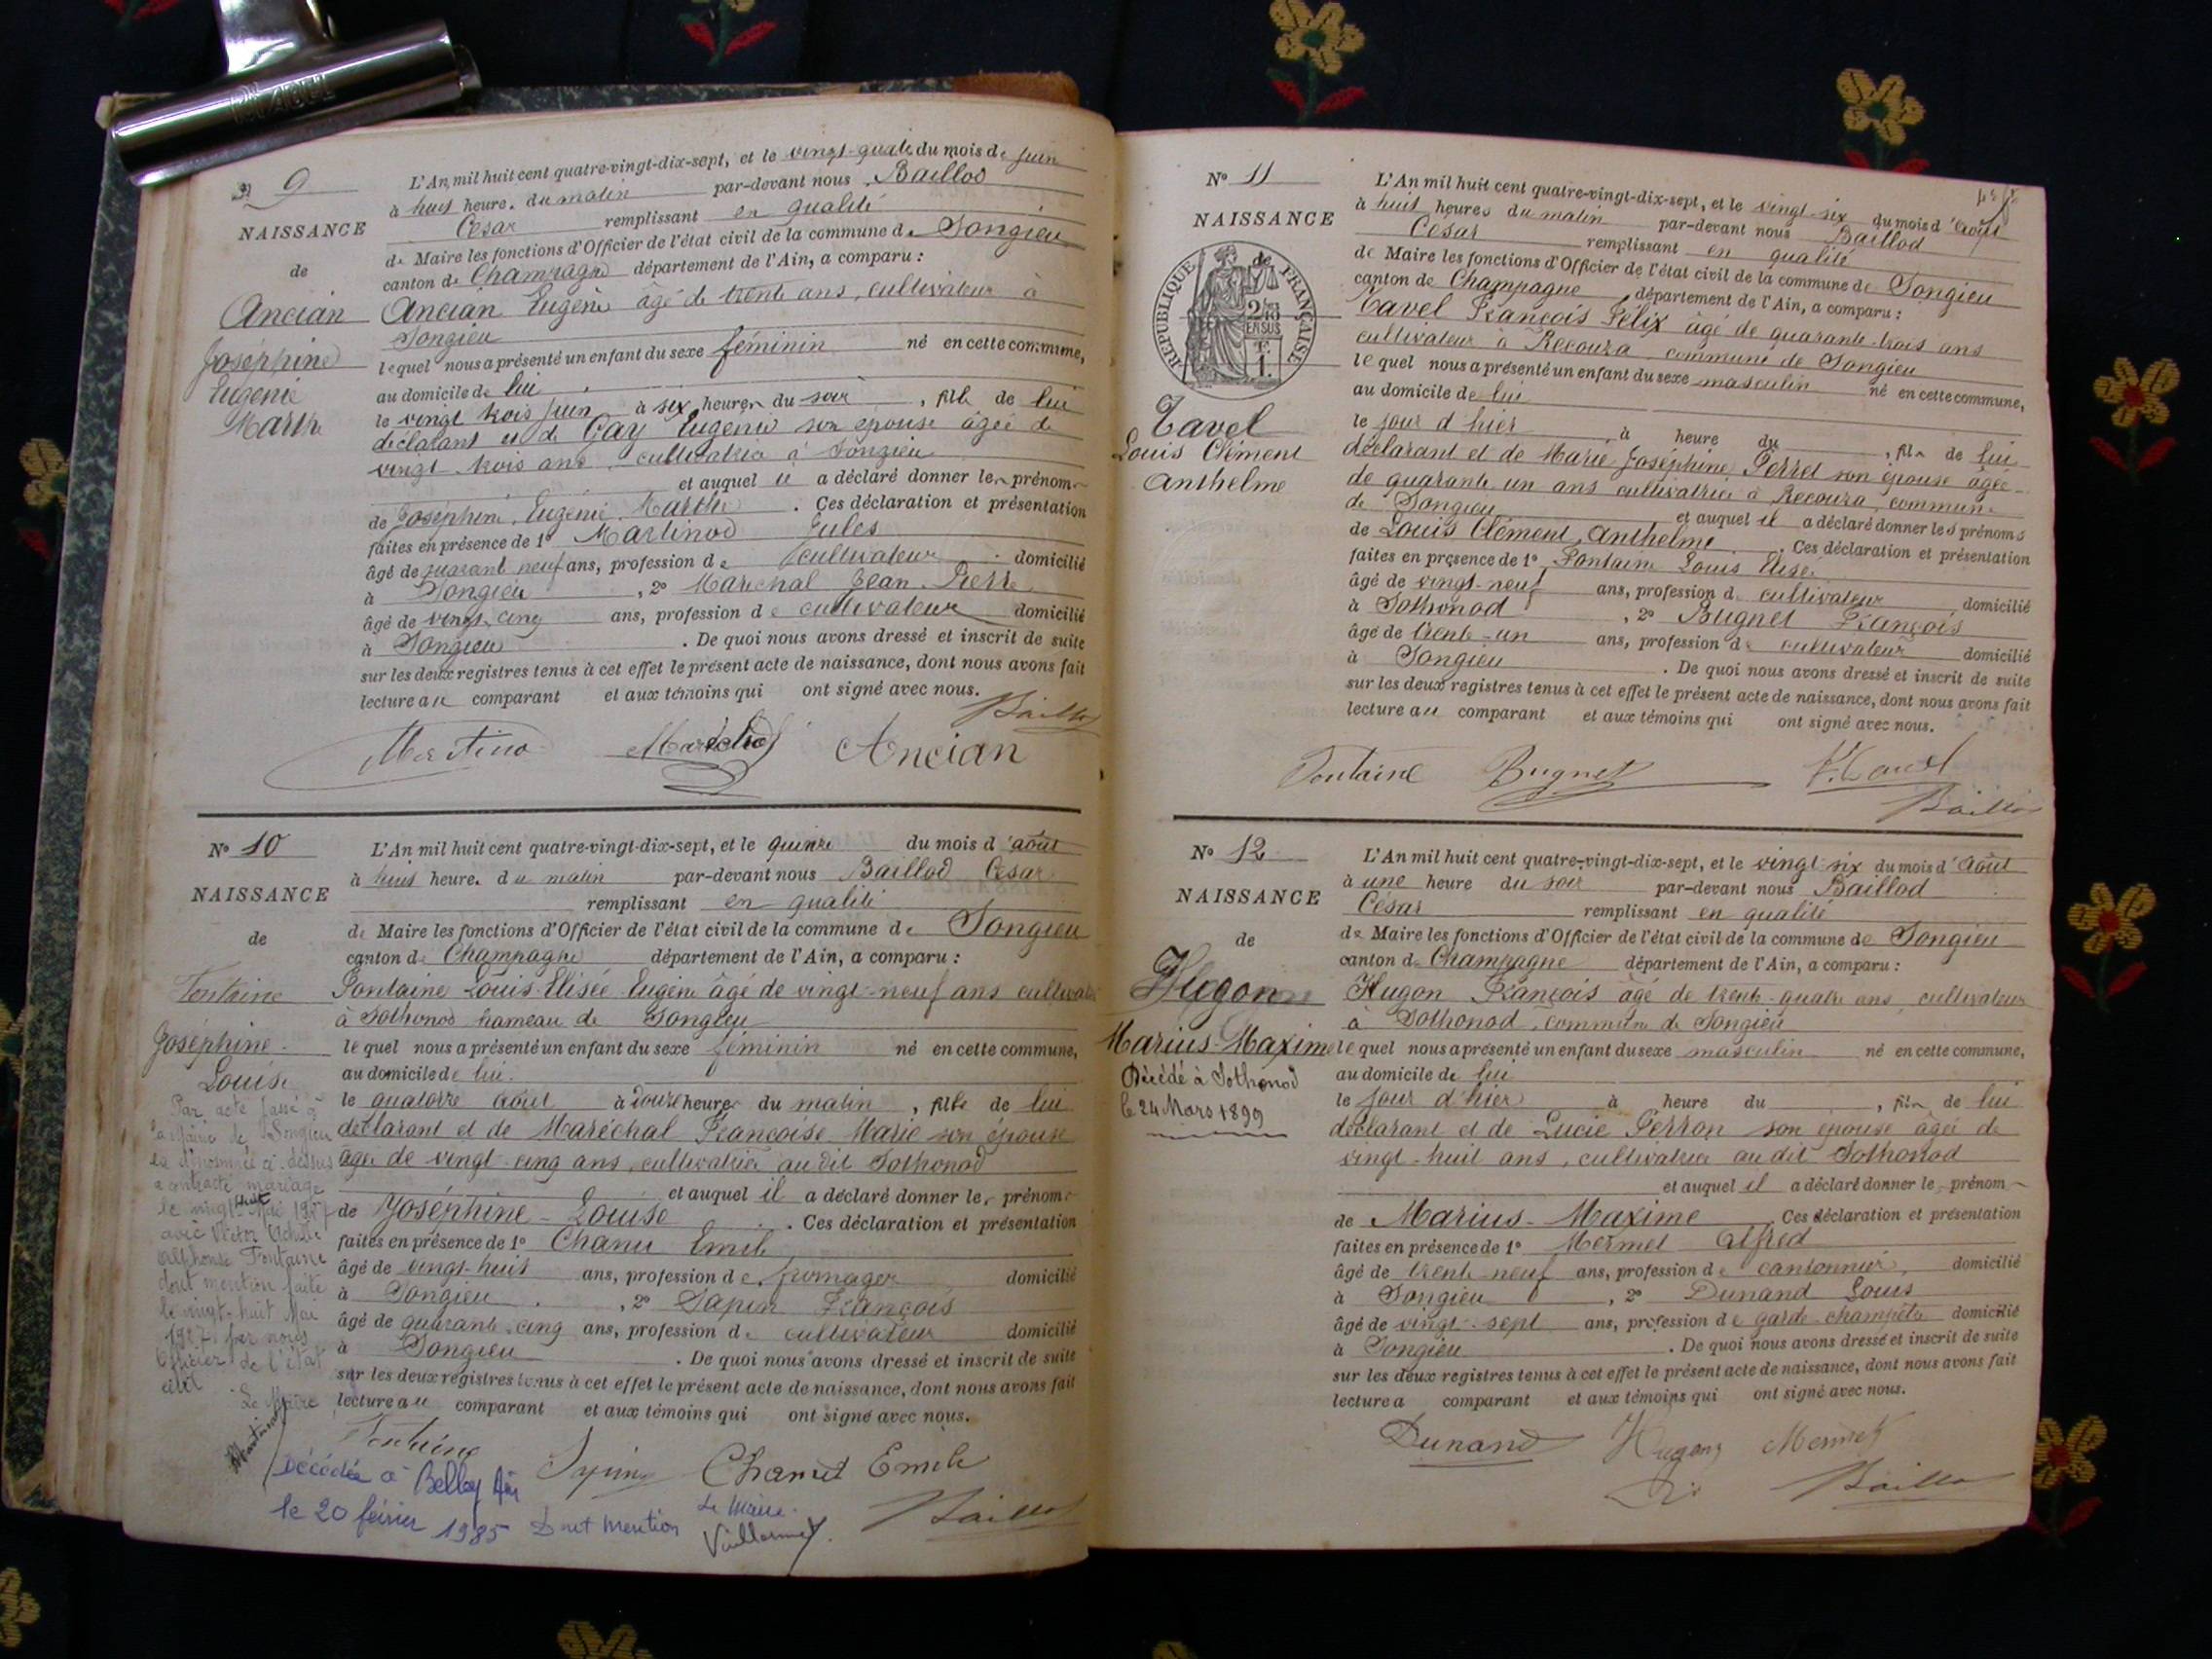 N° 9
NAISSANCE
de
Ancian
Joséphine
Eugénie
Marthe
L'An mil huit cent quatre-vingt-dix-sept, et le vingt-quatre du mois de Juin
à huit heure. du matin par-devant nous Baillod
César remplissant en qualité
de Maire les fonctions d'Officier de l'état civil de la commune de Songieu
canton de Champagne département de l'Ain, a comparu :
Ancian Eugène âgé de trente ans, cultivateur à
Songieu
lequel nous a présenté un enfant du sexe féminin né en cette commune,
au domicile de lui
le vingt trois Juin à six heures du soir, fille de lui
déclarant et de Gay Eugénie son épouse âgée de
vingt-trois ans, cultivatrice à Songieu
et auquel il a déclaré donner les prénoms
de Joséphine, Eugénie Marthe. Ces déclaration et présentation
faites en présence de 1° Martinod Jules
âgé de quarante neuf ans, profession de cultivateur domicilié
à Songieu, 2° Maréchal Jean-Pierre
âgé de vingt-cinq ans, profession de cultivateur domicilié
à Songieu. De quoi nous avons dressé et inscrit de suite
sur les deux registres tenus à cet effet le présent acte de naissance, dont nous avons fait
lecture au comparant et aux témoins qui ont signé avec nous.
Baillod
Martino Maréchal Ancian
N° 10
NAISSANCE
de
Fontaine
Joséphine
Louise
Par acte passé à
la Mairie de Songieu
la dénommée ci-dessus
a contracté mariage
le vingt huit Mai 1927
avec Victor Achille
Alphonse Fontaine
dont mention faite
le vingt-huit Mai
1927 par nous
Officier de l'état
civil
Le Maire
L'An mil huit cent quatre-vingt-dix-sept, et le quinze du mois d'août
à huit heure. du matin par-devant nous Baillod César
remplissant en qualité
de Maire les fonctions d'Officier de l'état civil de la commune de Songieu
canton de Champagne département de l'Ain, a comparu :
Fontaine Louis-Elisée Eugène âgé de vingt-neuf ans cultivateur
à Sothonod hameau de Songieu
lequel nous a présenté un enfant du sexe féminin né en cette commune,
au domicile de lui.
le quatorze août à douze heures du matin, fille de lui
déclarant et de Maréchal Françoise Marie son épouse
âgée de vingt-cinq ans, cultivatrice au dit Sothonod
et auquel il a déclaré donner les prénoms
de Joséphine-Louise. Ces déclaration et présentation
faites en présence de 1° Chanu Emile
âgé de vingt-huit ans, profession de fromager domicilié
à Songieu, 2° Sapin François
âgé de quarante-cinq ans, profession de cultivateur domicilié
à Songieu. De quoi nous avons dressé et inscrit de suite
sur les deux registres tenus à cet effet le présent acte de naissance, dont nous avons fait
lecture au comparant et aux témoins qui ont signé avec nous.
Fontaine
Chanut Emile
Décédée à Belley Ain
le 20 février 1985 Dont mention
Le Maire.
Baillod
N° 11
NAISSANCE
de
REPUBLIQUE FRANÇAISE
Tavel
Louis Clément
Anthelme
L'An mil huit cent quatre-vingt-dix-sept, et le vingt-six du mois d'août
à huit heures du matin par-devant nous Baillod
César remplissant en qualité
de Maire les fonctions d'Officier de l'état civil de la commune de Songieu
canton de Champagne département de l'Ain, a comparu :
Tavel François Félix âgé de quarante-trois ans
cultivateur à Recouza commune de Songieu
lequel nous a présenté un enfant du sexe masculin né en cette commune,
au domicile de lui
le jour d'hier à heure du, fils de lui
déclarant et de Marie-Joséphine Perret son épouse âgée
de quarante un ans cultivatrice à Recouza, commune
de Songieu et auquel il a déclaré donner les prénoms
de Louis Clément, Anthelme. Ces déclaration et présentation
faites en présence de 1° Fontaine Louis Elisé
âgé de vingt-neuf ans, profession de cultivateur domicilié
à Sothonod, 2° Bugnet François
âgé de trente-un ans, profession de cultivateur domicilié
à Songieu. De quoi nous avons dressé et inscrit de suite
sur les deux registres tenus à cet effet le présent acte de naissance, dont nous avons fait
lecture au comparant et aux témoins qui ont signé avec nous.
Fontaine Bugnet F. Tavel
Baillod
N° 12
NAISSANCE
de
Hugon
Marius-Maxime
Décédé à Sothonod
le 24 Mars 1899
L'An mil huit cent quatre-vingt-dix-sept, et le vingt-six du mois d'août
à une heure du soir par-devant nous Baillod
César remplissant en qualité
de Maire les fonctions d'Officier de l'état civil de la commune de Songieu
canton de Champagne département de l'Ain, a comparu :
Hugon François âgé de trente-quatre ans, cultivateur
à Sothonod, commune de Songieu
lequel nous a présenté un enfant du sexe masculin né en cette commune,
au domicile de lui
le jour d'hier à heure du, fils de lui
déclarant et de Lucie Perron son épouse âgée de
vingt-huit ans, cultivatrice au dit Sothonod
et auquel il a déclaré donner le prénom
de Marius-Maxime. Ces déclaration et présentation
faites en présence de 1° Mermet Alfred
âgé de trente-neuf ans, profession de cantonnier, domicilié
à Songieu, 2° Dunand Louis
âgé de vingt-sept ans, profession de garde-champêtre domicilié
à Songieu. De quoi nous avons dressé et inscrit de suite
sur les deux registres tenus à cet effet le présent acte de naissance, dont nous avons fait
lecture a comparant et aux témoins qui ont signé avec nous.
Dunand Hugon Mermet
Baillod